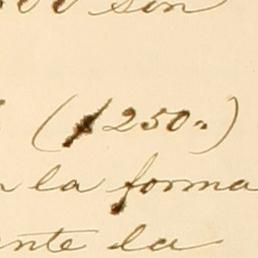 son
($250=)
la forma
nte la